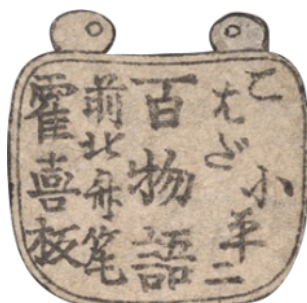 こはだ小平二
百物語
前北斎笔
霍喜板